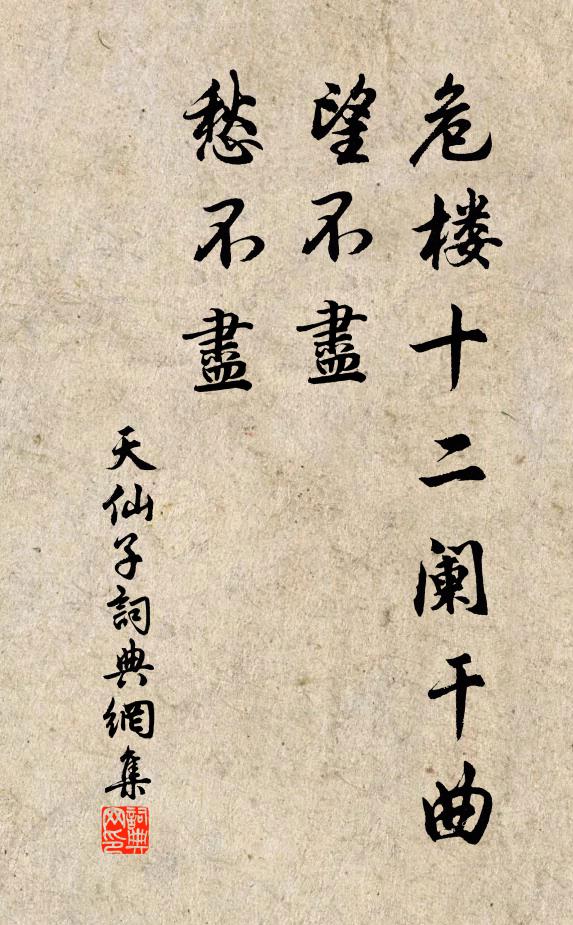 危楼十二阑干曲
望不盡
愁不盡
天仙子詞典網集
詞典网印